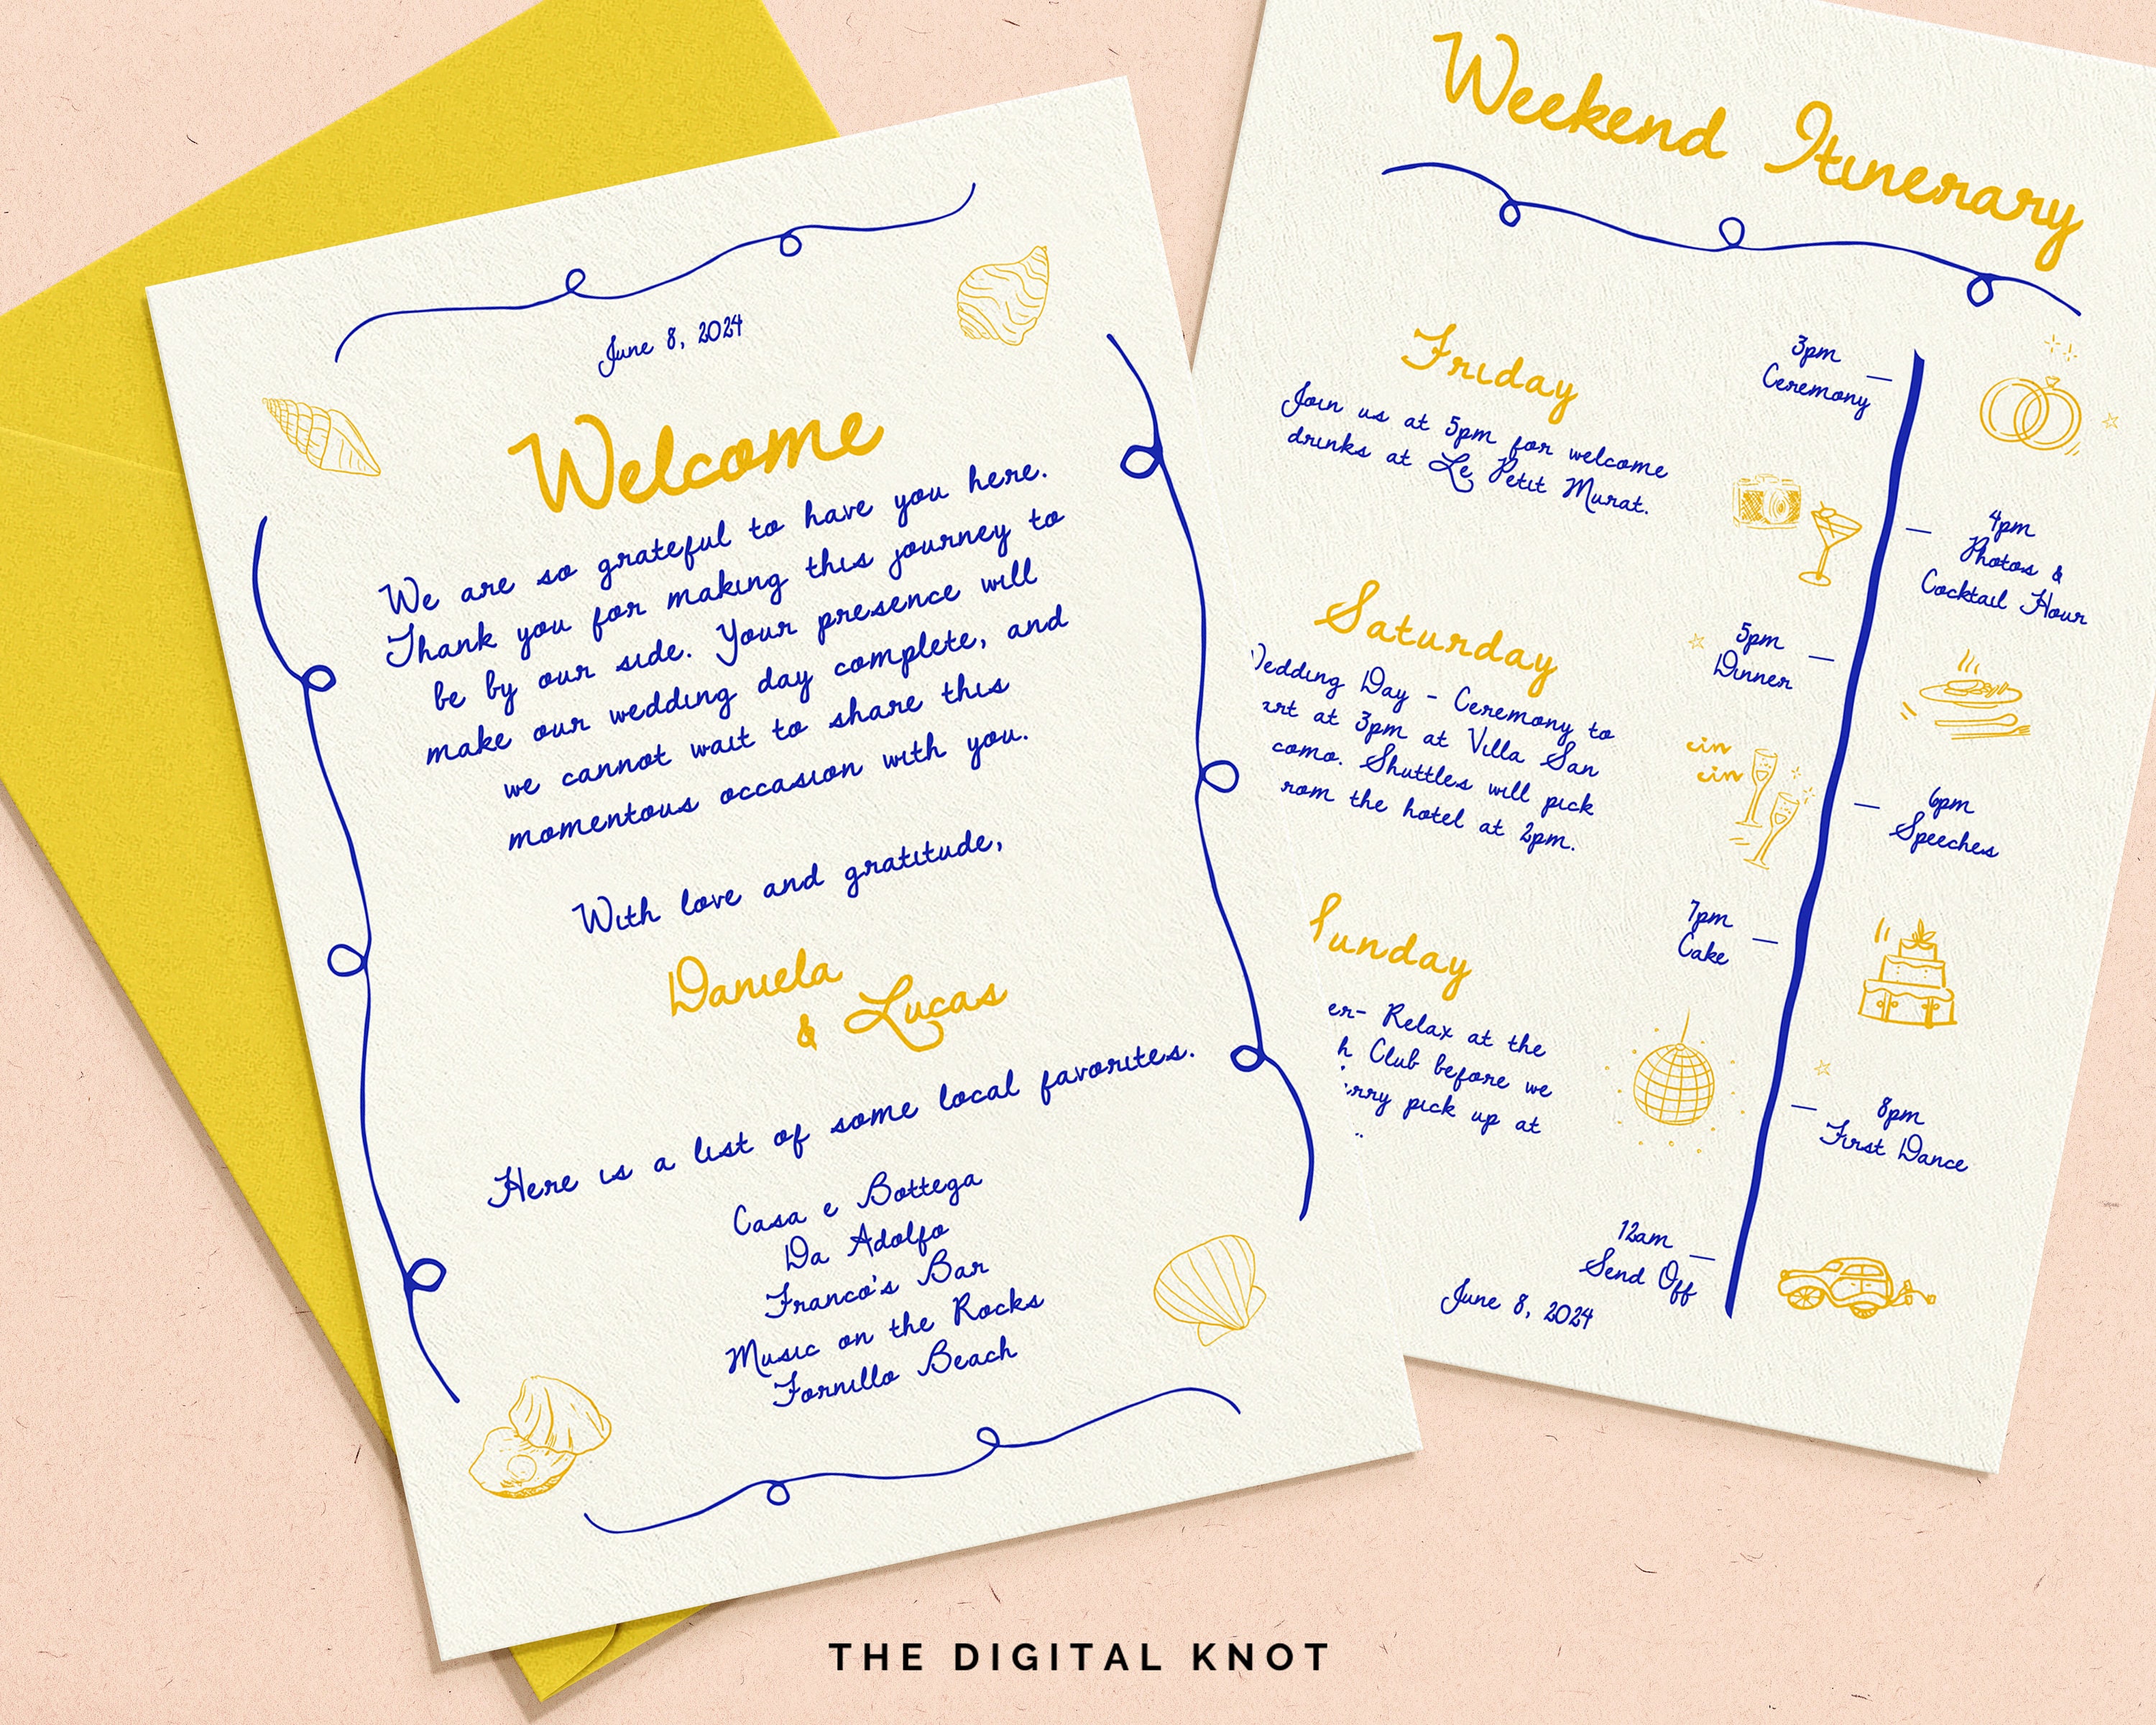 June 8, 2024
Welcome
We are so grateful to have you here.
Thank you for making this journey to
be by our side. Your presence will
make our wedding day complete, and
we cannot wait to share this
momentous occasion with you.
With love and gratitude,
Daniela
& Lucas
Here is a list of some local favorites.
Casa e Bottega
Da Adolfo
Franco's Bar
Music on the Rocks
Fornillo Beach
Weekend Itinerary
Friday
Join us at 5pm for welcome
drinks at Le Petit Murat.
Saturday
Day - Ceremony to
at 3pm at Villa San
Shuttles will pick
the hotel at 2pm.
Sunday
Relax at the
Club before we
pick up at
3pm
Ceremony
4pm
Photos &
Cocktail Hour
5pm
Dinner
cin
cin
6pm
Speeches
7pm
Cake
8pm
First Dance
12am
Send Off
June 8, 2024
THE DIGITAL KNOT